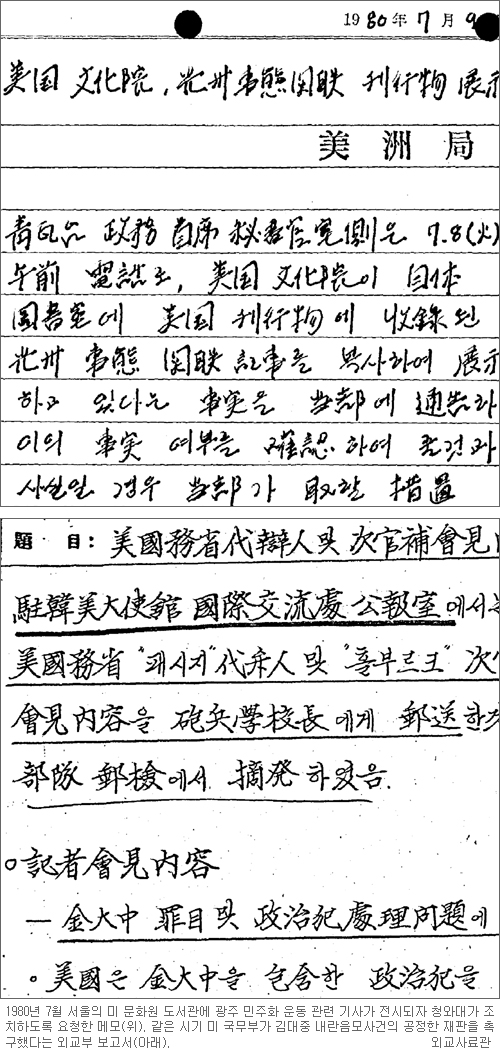 1980年 7月 9
美国 文化院, 光州事態関联 刊行物 展示
美 洲 局
靑瓦台 政務 首席 秘書官室側은 7.8(火)
午前 電話로, 美国 文化院이 自体
図書室에 美国 刊行物에 收錄된
光州 事態 関联 記事를 복사하여 展示
하고 있다는 事実을 当部에 通告하
이의 事実 여부를 確認하여
사실일 경우 当部가 取할 措置
題 目: 美國務省代辯人 및 次官補會見內
駐韓美大使館 國際交流處 公報室에서는
美國務省 "패시지"代弁人 및 "홀부르크" 次官
會見內容을 砲兵學校長에게 郵送한것
部隊 郵檢에서 摘発하였음.
○記者會見內容
— 金大中 罪目 및 政治犯處理問題에
∘ 美國은 金大中을 包含한 政治犯을
1980년 7월 서울의 미 문화원 도서관에 광주 민주화 운동 관련 기사가 전시되자 청와대가 조
치하도록 요청한 메모(위). 같은 시기 미 국무부가 김대중 내란음모사건의 공정한 재판을 촉
구했다는 외교부 보고서(아래). 외교사료관